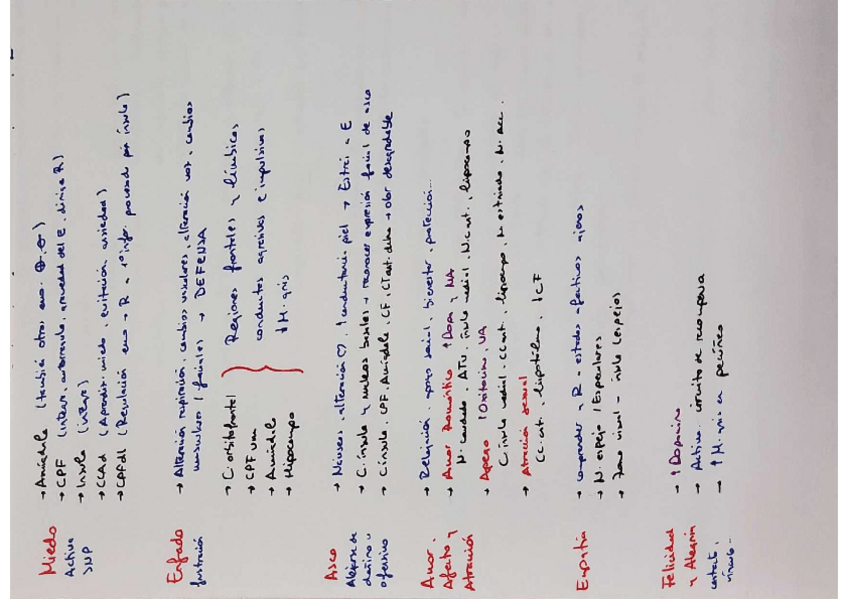 Miedo
Activa
SNP
→ Amígdala (también otras emo. ⊕.⊖)
→ CPF (integr. autorregula, gravedad del E. dirige R)
→ Ínsula (integra)
→ CCAd (Aprendiz. miedo, evitación, ansiedad)
→ CPFdl (Regulación emo → R = infor. procesada por ínsula)
Enfado
frustración
→ Alteración respiración, cambios viscerales, alteración voz, cambios
musculares / faciales → DEFENSA
→ C. orbitofrontal
→ CPF vm
→ Amígdala
→ Hipocampo
Regiones frontales y límbicas
conductas agresivas e impulsivas
↓ M. gris
Asco
Alejarse de
dañino u
ofensivo
→ Náuseas, alteración ♡, ↑ conductancia piel →
→ C. ínsula y núcleos basales → reconocer expresión facial de asco
→ C. ínsula, CPF, Amígdala, CF, → olor desagradable
Amor,
Afecto y
Atracción
→ Relajación, apoyo social, bienestar, protección...
→ Amor Romántico ↑ Dopa y NA
N. caudado, ATV, ínsula medial, hipocampo
→ Apego ↑ Oxitocina, VA
C. ínsula medial, CC ant., hipocampo, N. estriado, N. Acc.
→ Atracción sexual
CC ant., hipotálamo, ↓ CF
Empatía
→ comprender y R = estados afectivos ajenos
→ N. espejo / Espectadores
→ visual – ínsula (espejo)
Felicidad
y Alegría
contacto,
vínculo...
→ ↑ Dopamina
→ Activa circuito de recompensa
→ ↑ M. gris